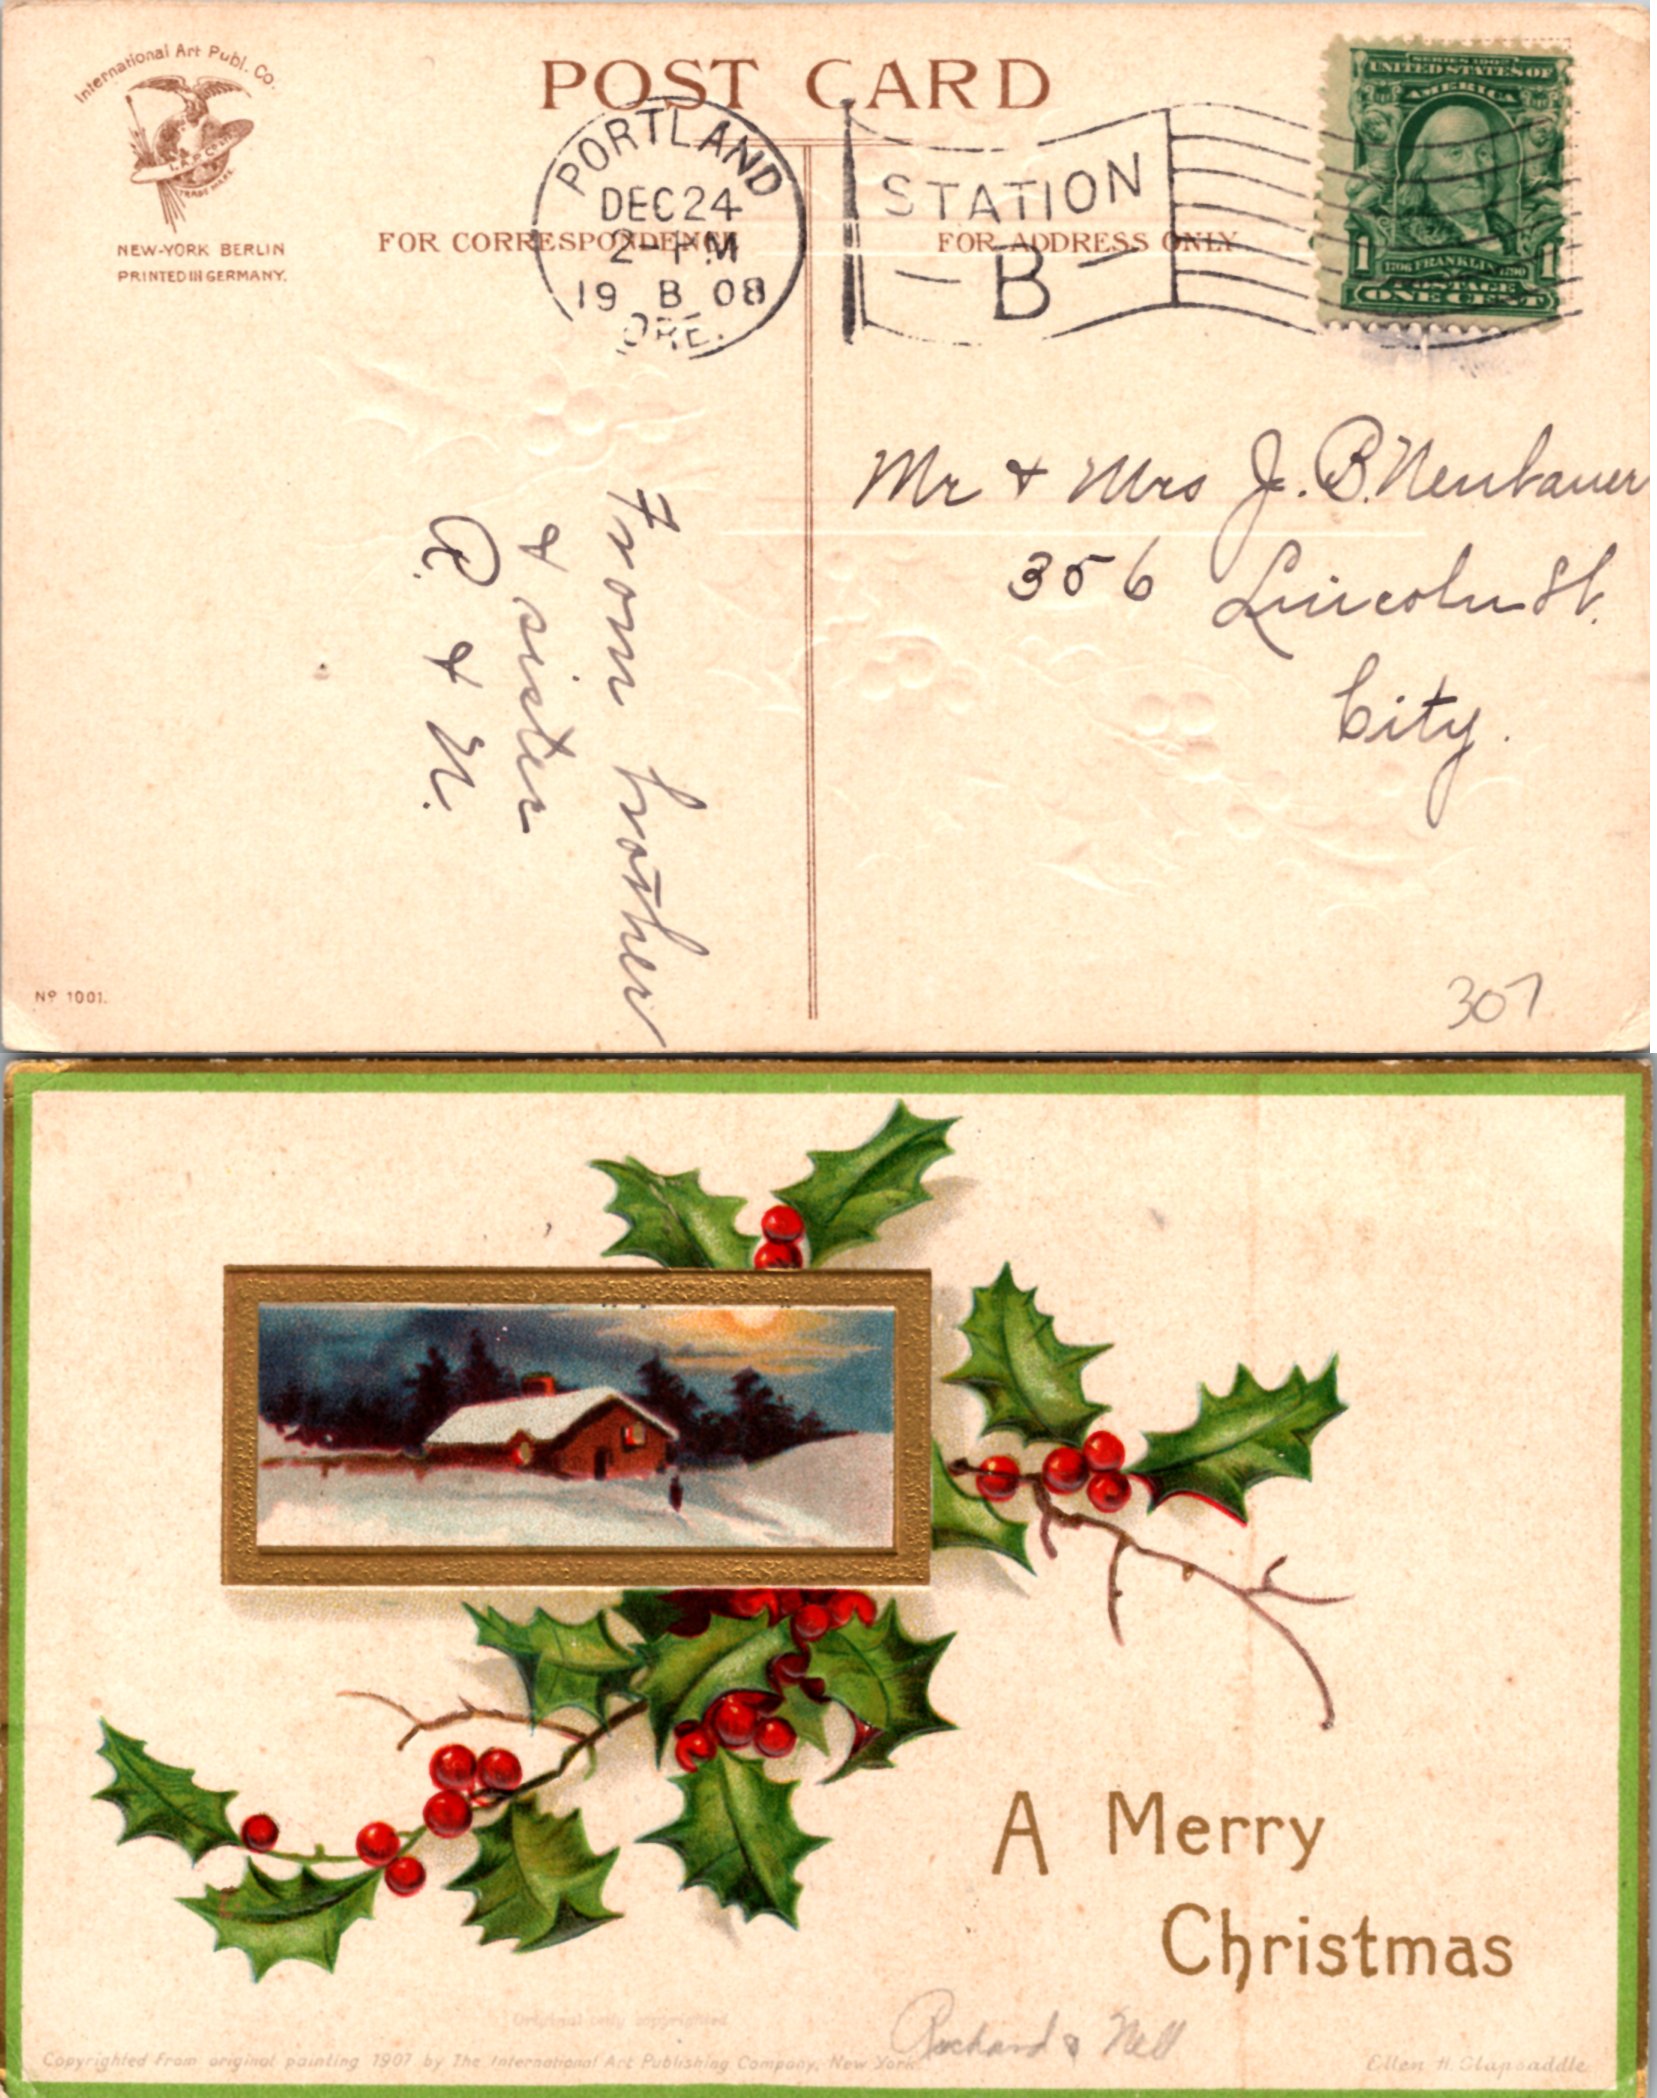 International Art Publ. Co.
I.A.P.Co.
TRADE MARK.
NEW-YORK BERLIN
PRINTED IN GERMANY.
POST CARD
FOR CORRESPONDENCE
FOR ADDRESS ONLY
PORTLAND
DEC 24
2-PM
19 B 08
ORE.
STATION
B
SERIES 1902
UNITED STATES OF
AMERICA
1706 FRANKLIN 1790
1 1
POSTAGE
ONE CENT
Mr & Mrs J. B. Neubauer
356 Lincoln St.
City.
From brother
& sister
R. & N.
Nº 1001.
307
A Merry
Christmas
Richard & Nell
Original only copyrighted.
Copyrighted from original painting 1907 by The International Art Publishing Company, New York.
Ellen H. Clapsaddle